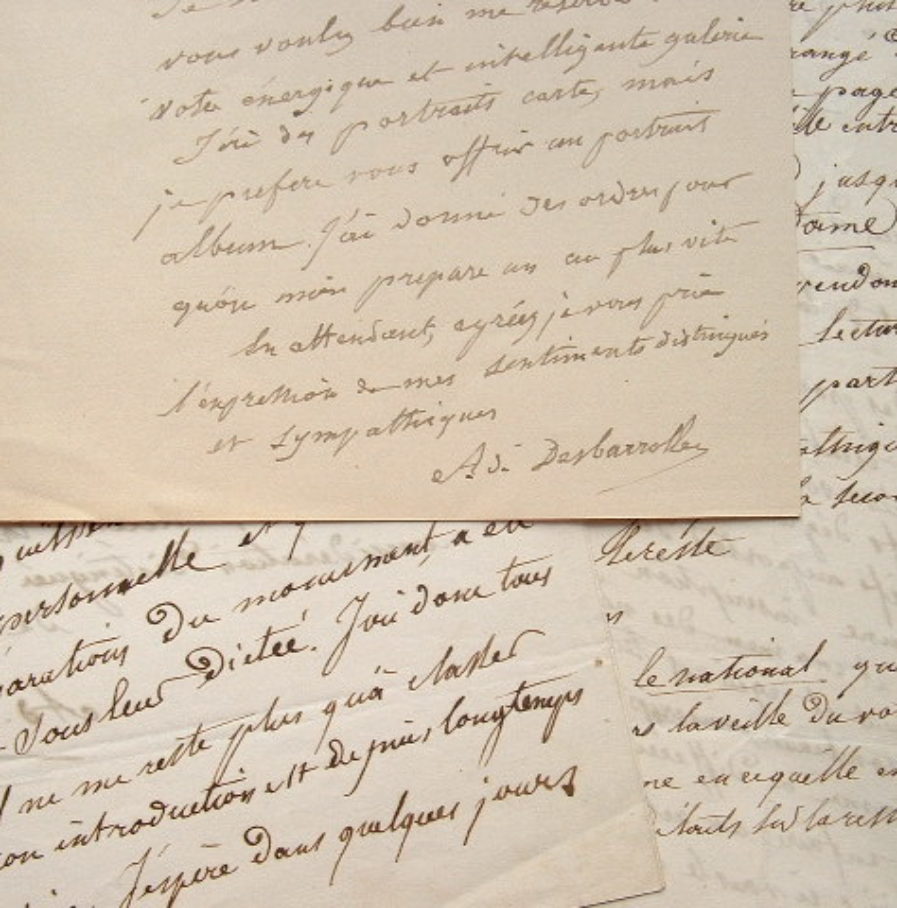 vous voulez bien me réserver
votre énergique et intelligente galerie
J'ai des portraits carte, mais
je prefere vous offrir un portrait
album. J'ai donné des ordres pour
qu'on m'en prepare un au plus vite
En attendant, agréez je vous prie
l'expression de mes sentiments distingués
et sympathiques
Ad. Desbarrolles
personnelle et
parations du monument, a eu
sous leur dictée. J'ai donc tous
ne me reste plus qu'à classer
introduction est depuis longtemps
J'espère dans quelques jours
rangé
page
jusqu
Dame
rendon
lectur
part
le secon
Le reste
le national qu
la veille du vo